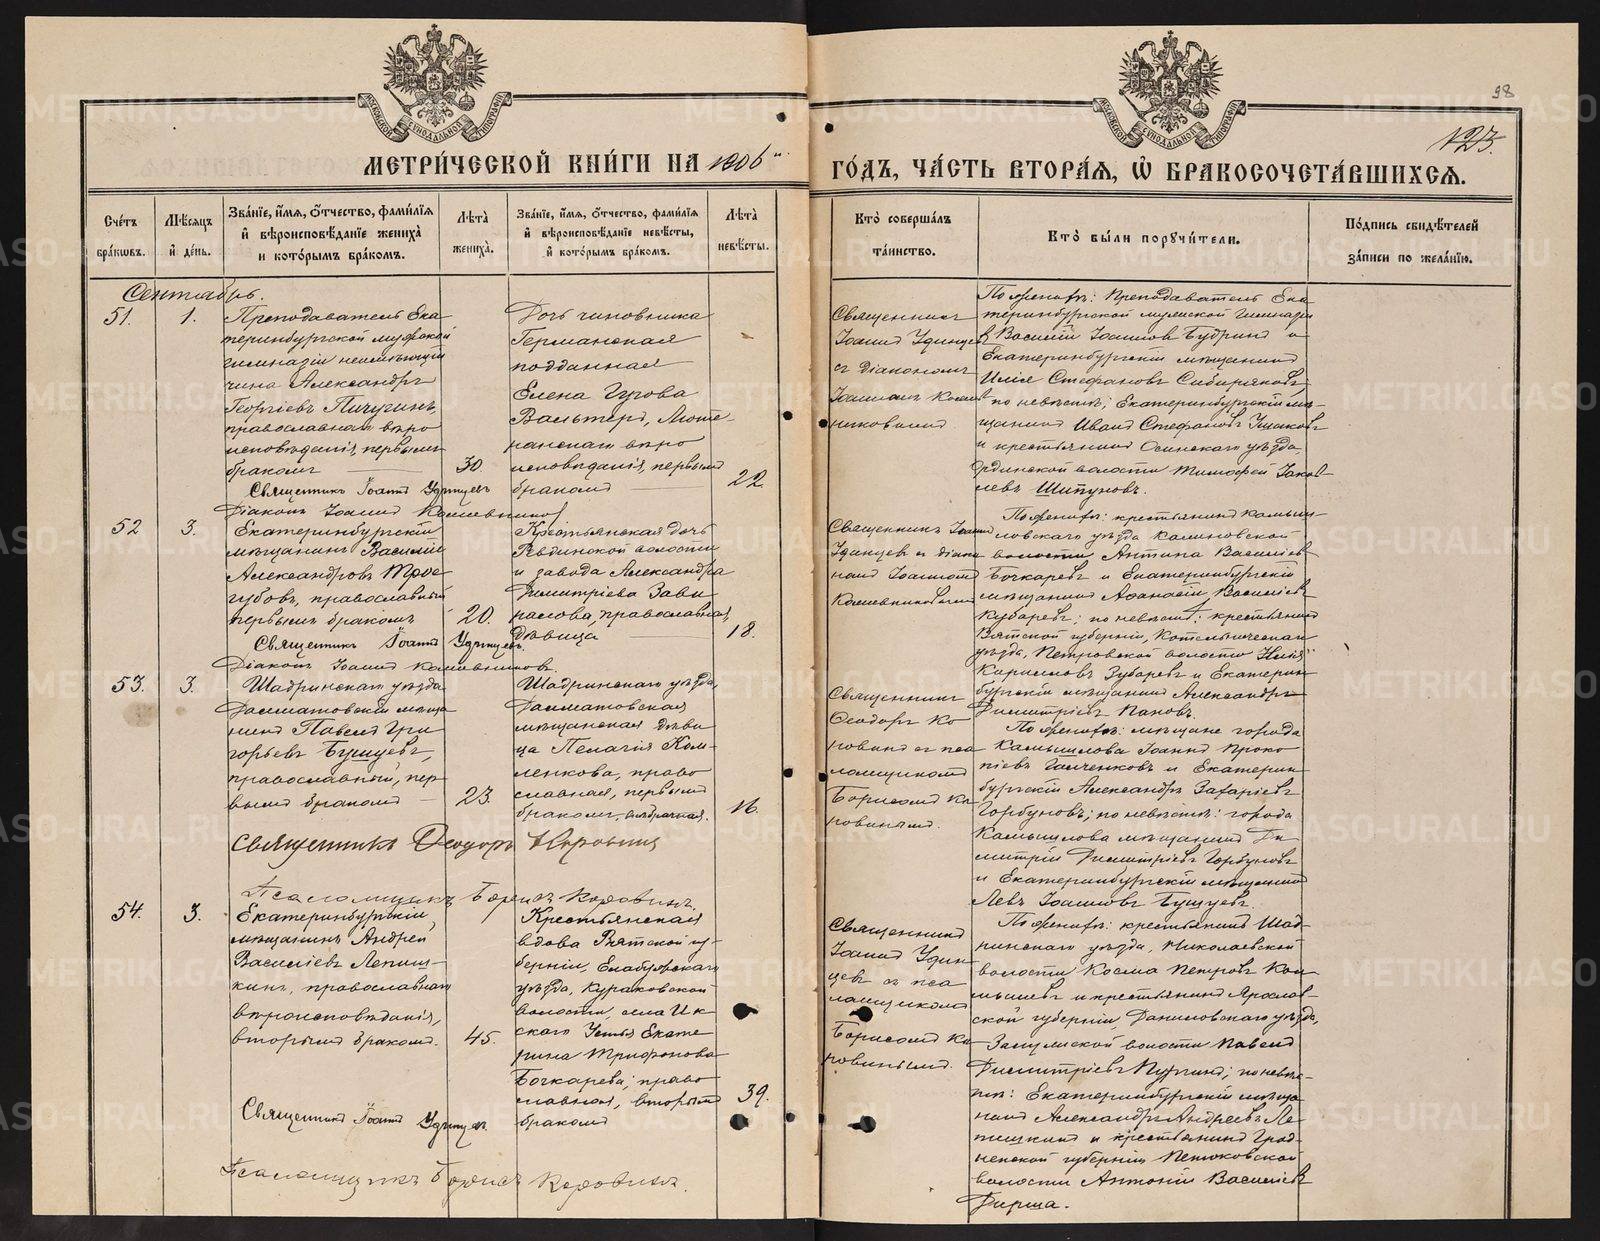 98
125.
МЕТРИ́ЧЕСКОЙ КНИ́ГИ НА 1906 и
ГО́ДЪ, ЧА́СТЬ ВТОРА́Ѧ, Ѡ҆ БРАКОСОЧЕТА́ВШИХСѦ.
Сче́тъ бра́кѡвъ.
Мѣ́сѧцъ и҆ де́нь.
Зва́нїе, и҆́мѧ, о҆́тчество, фамі́лїѧ
и҆ вѣроисповѣ́данїе жениха̀
и кото́рымъ бра́комъ.
Лѣ́та жениха̀.
Зва́нїе, и҆́мѧ, о҆́тчество, фамі́лїѧ
и҆ вѣроисповѣ́данїе невѣ́сты,
и҆ кото́рымъ бра́комъ.
Лѣ́та невѣ́сты.
Кто̀ соверша́лъ
та́инство.
Кто̀ бы́ли порꙋчи́тели.
По́дпись свидѣ́телей
за́писи по жела́нїю.
Сентябрь.
51.
1.
Преподаватель Ека
теринбургской мужской
гимназіи неимѣющій
чина Александръ
Георгіевъ Пичугинъ,
православнаго вѣро
исповѣданія, первымъ
бракомъ
30.
Дочь чиновника
Германская
подданная
Елена
Вальтеръ, Люте
ранскаго вѣро
исповѣданія, первымъ
бракомъ
22.
Священникъ
Іоаннъ Удинцев
съ діакономъ
Іоанномъ
По женихѣ: Преподаватель Ека
теринбургской мужской гимназіи
Василій Іоанновъ Будринъ и
Екатеринбургскій мѣщанинъ
Илія Стефановъ Сибиряковъ
по невѣстѣ; Екатеринбургскій мѣ-
щанинъ Иванъ Стефановъ
и крестьянинъ Осинскаго уѣзда,
Ординской волости Тимофей Іаков
левъ Шипуновъ.
Священникъ Іоаннъ Удинцевъ
Діаконъ Іоаннъ
52
3.
Екатеринбургскій
мѣщанинъ Василій
Александровъ Трое
губовъ, православный
первымъ бракомъ
20.
Крестьянская дочь
Ревдинской волости
и завода Александра
Димитріева Зави
ралова, православная,
дѣвица
18.
Священникъ Іоаннъ
Удинцевъ съ діако
номъ Іоанномъ
По женихѣ: крестьянинъ Камыш-
ловскаго уѣзда Калиновской
волости Антипа Васильевъ
Бочкаревъ и Екатеринбургскій
мѣщанинъ Аѳанасій Васильевъ
Кубаревъ; по невѣстѣ: крестьянинъ
Вятской губерніи, Котельническаго
уѣзда, Петровской волости Илія
Кирилловъ Зубаревъ и Екатерин
бургскій мѣщанинъ Александръ
Димитріевъ Пановъ.
Священникъ Іоаннъ Удинцевъ.
Діаконъ Іоаннъ
53.
3.
Шадринскаго уѣзда
Далматовскій мѣща
нинъ Павелъ Гри
горьевъ Бушуевъ,
православный, пер
вымъ бракомъ
23.
Шадринскаго уѣзда,
Далматовская
мѣщанская дѣви
ца Пелагія Ком
ленкова, право
славная, первымъ
бракомъ,
16.
Священникъ
Ѳеодоръ Ко
ровинъ съ пса
ломщикомъ
Борисомъ Ко
ровинымъ.
По женихѣ: мѣщане города
Камышлова Іоаннъ Проко
піевъ и Екатерин
бургскій Александръ Захаріевъ
Горбуновъ; по невѣстѣ: города
Камышлова мѣщанинъ Ди
митрій Димитріевъ Горбуновъ
и Екатеринбургскій мѣщанинъ
Левъ Іоанновъ Бушуевъ.
Священникъ Ѳеодоръ Коровинъ
Псаломщикъ Борисъ Коровинъ.
54.
3.
Екатеринбургскій
мѣщанинъ Андрей
Васильевъ Лепиш-
кинъ, православнаго
вѣроисповѣданія,
вторымъ бракомъ.
45.
Крестьянская
вдова Вятской гу-
берніи, Елабужскаго
уѣзда, Кураковской
волости, села Ик
скаго Устья Екате
рина Трифонова
Бочкарева; право
славная, вторымъ
бракомъ
39.
Священникъ
Іоаннъ Удин
цев съ пса
ломщикомъ
Борисомъ Ко
ровинымъ.
По женихѣ: крестьянинъ Шад-
ринскаго уѣзда, Николаевской
волости Косма Петровъ
и крестьянинъ Ярослав-
ской губерніи, Даниловскаго уѣзда,
волости Павелъ
Димитріевъ по невѣ-
стѣ: Екатеринбургскій мѣща
нинъ Александръ Андреевъ Ле
пишкинъ и крестьянинъ Грод-
ненской губерніи
волости Антоній Васильевъ
Священникъ Іоаннъ Удинцев.
Псаломщикъ Борисъ Коровинъ.
METRIKI.GASO-URAL.RU